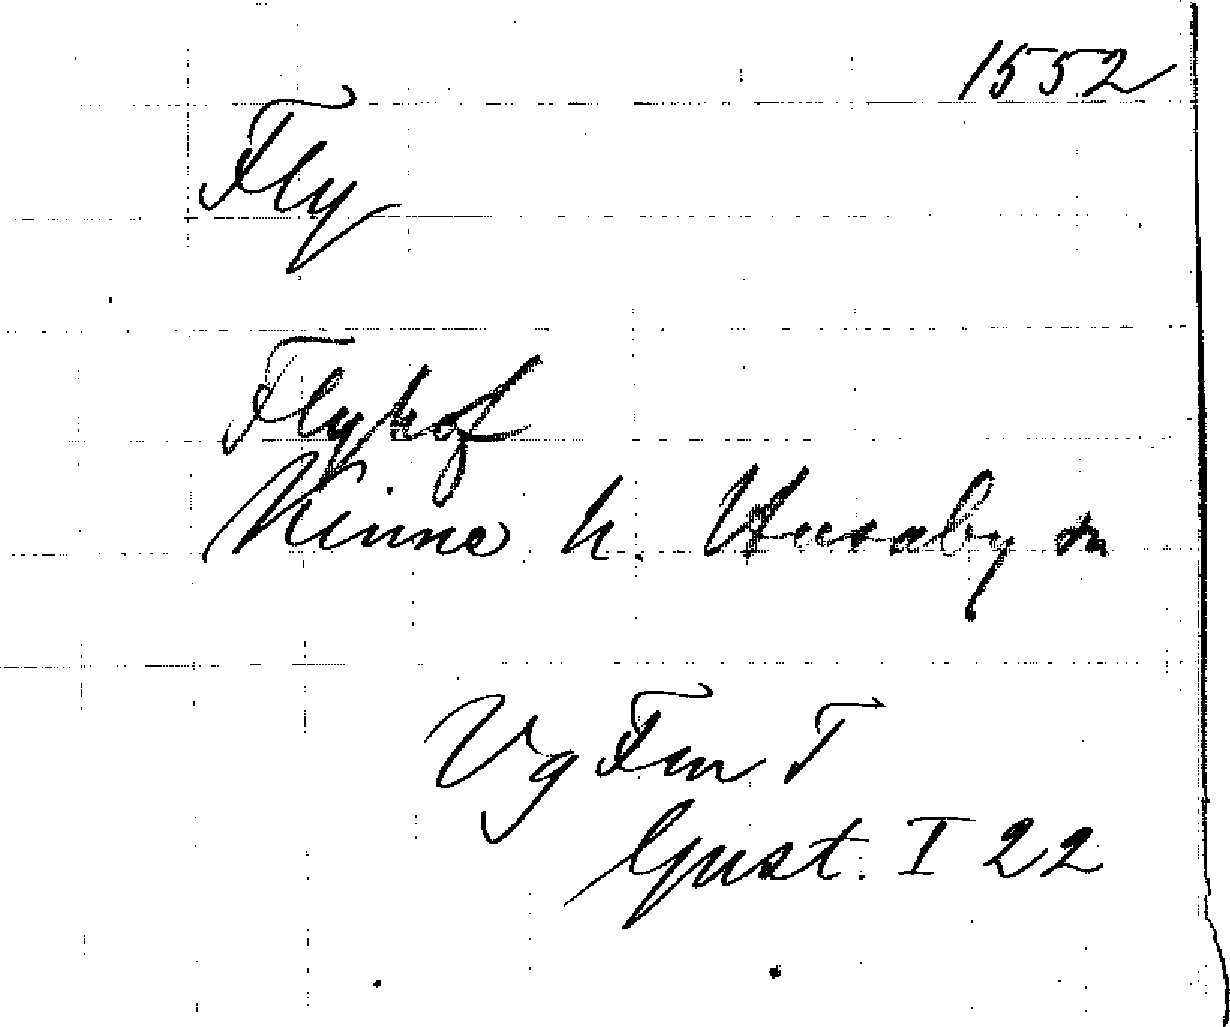 1552
Fly
Flyhof
Kinne h. Husaby sn
Vg Fm T
Gust. I 22